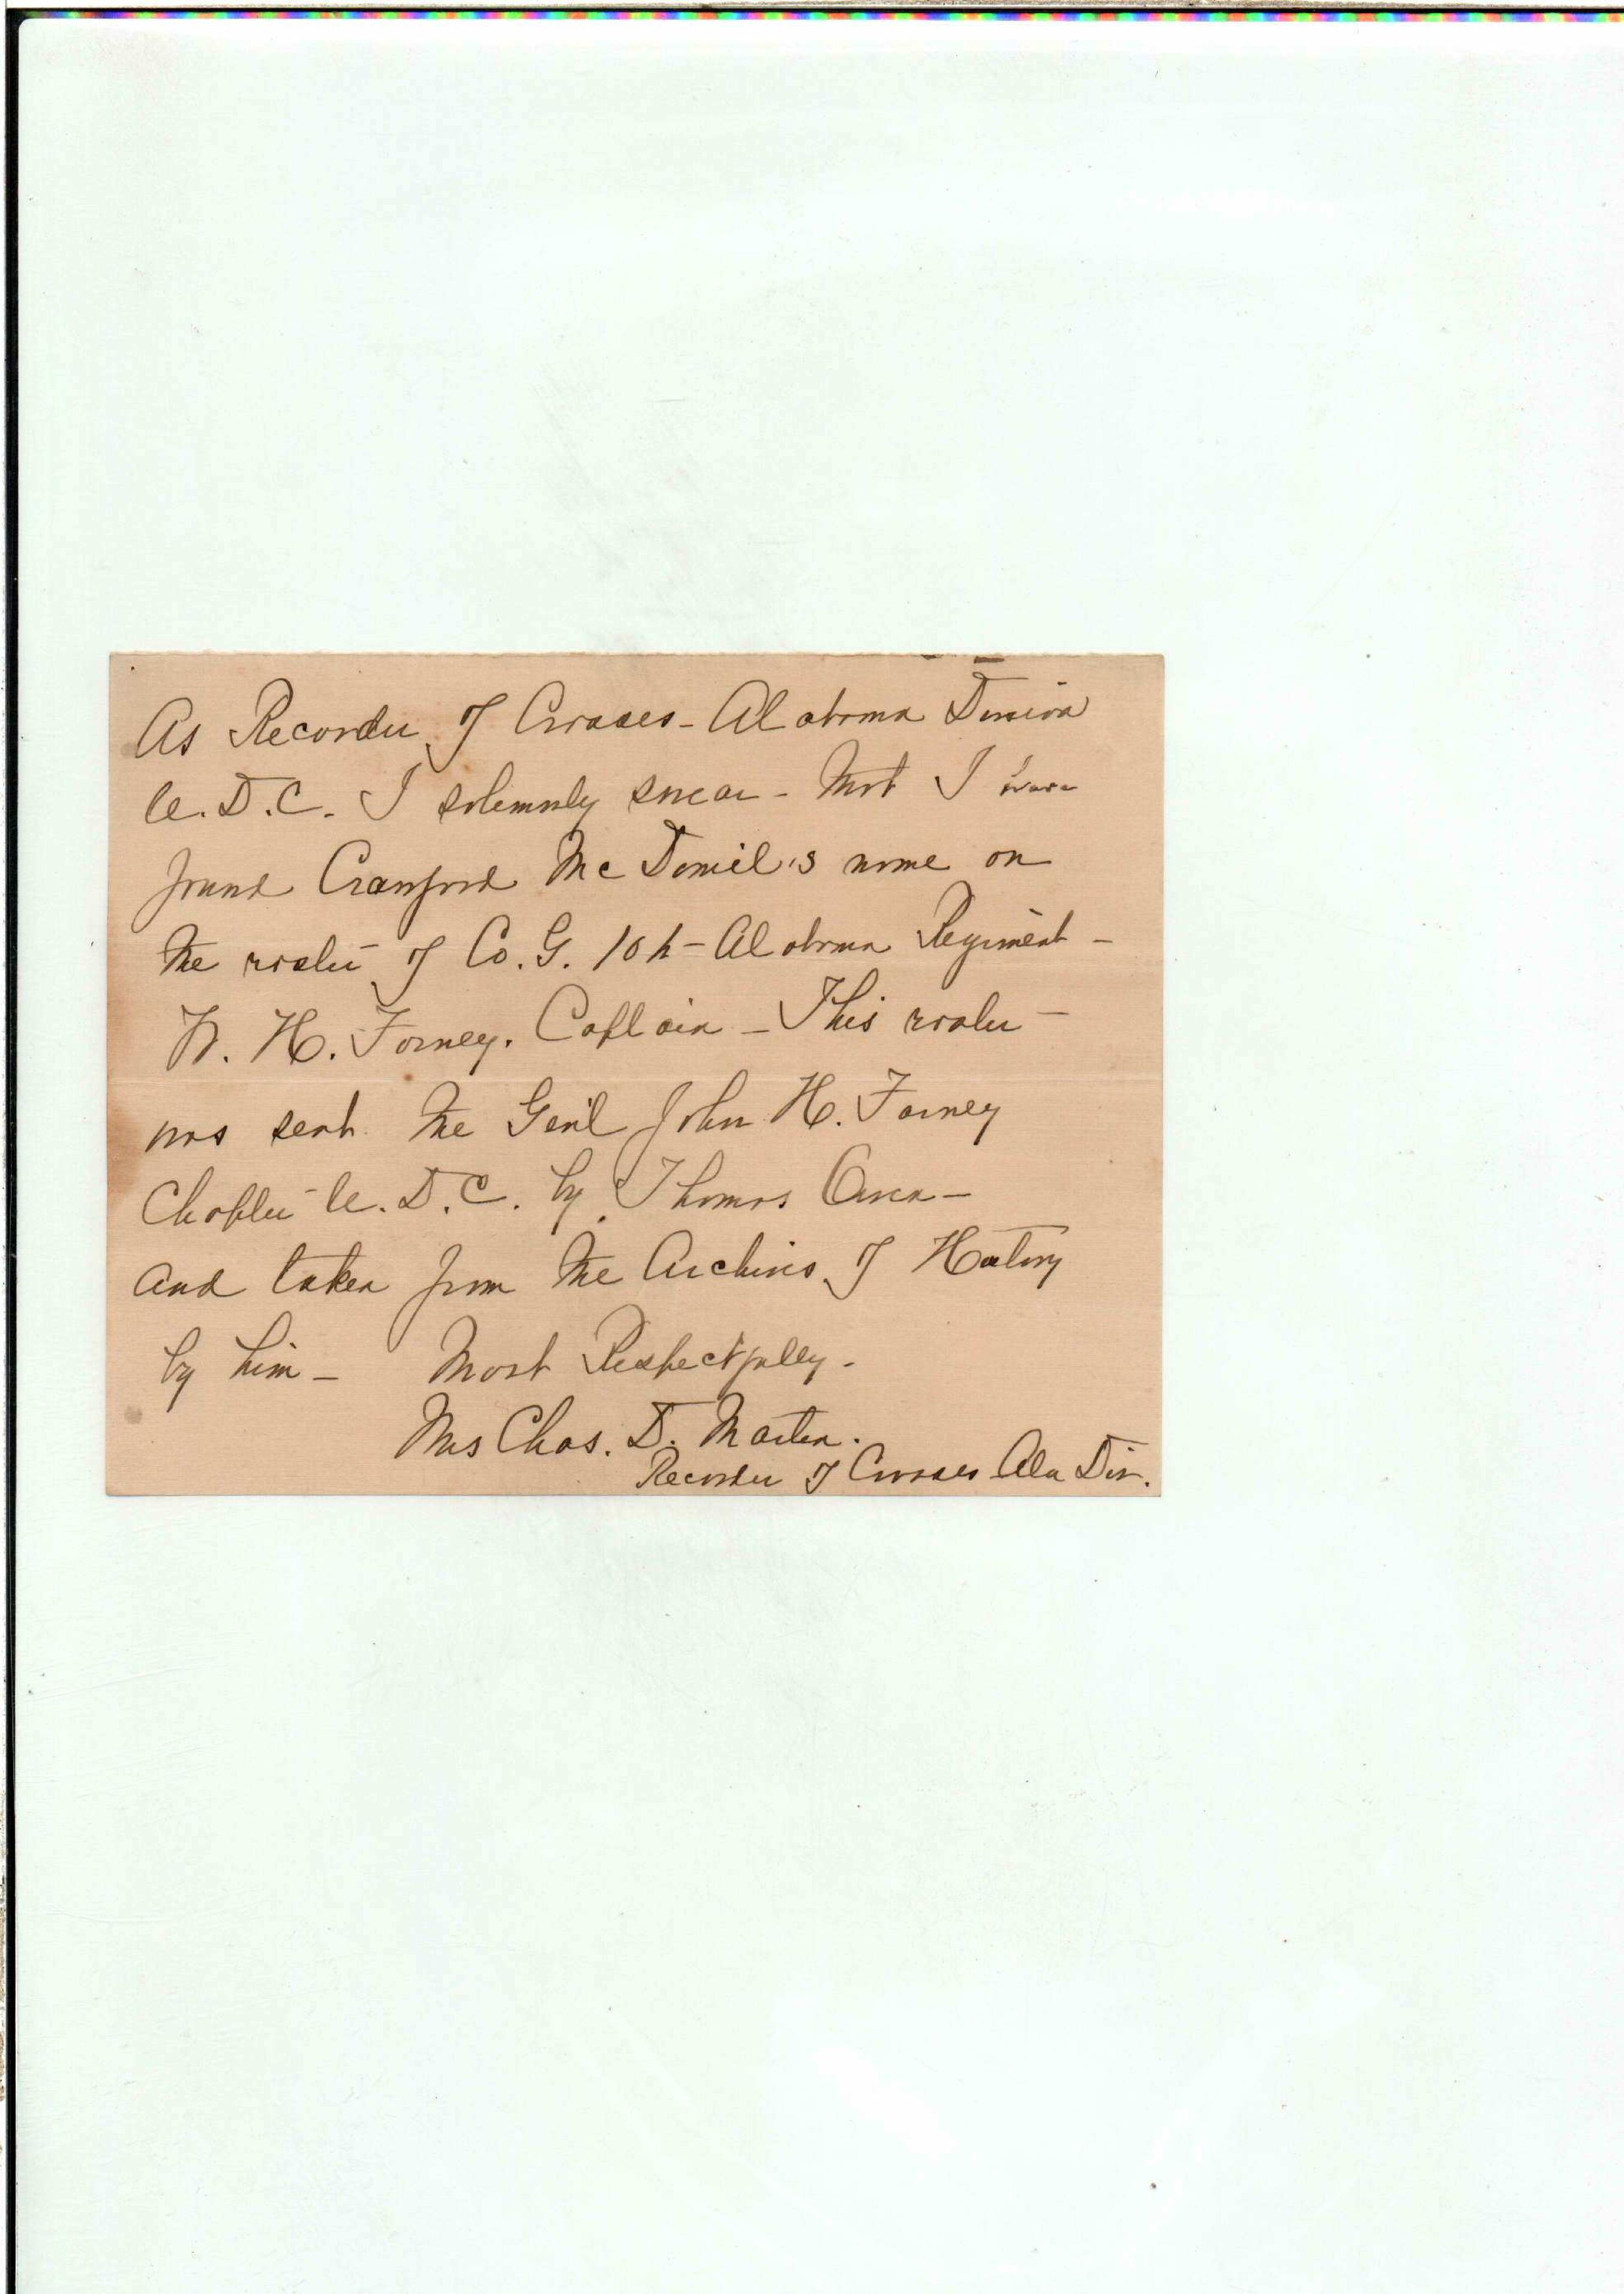 As Recorder of Crosses - Alabama Division
U.D.C. I solemnly swear - that I have
found Crawford McDaniel's name on
the roster of Co. G. 10th - Alabama Regiment -
W. H. Forney. Captain - This roster -
was sent the Gen'l John H. Forney
Chapter U.D.C. by Thomas Owen -
and taken from the Archives of History
by him - Most Respectfully -
Mrs Chas. D. Martin.
Recorder of Crosses Ala Div.